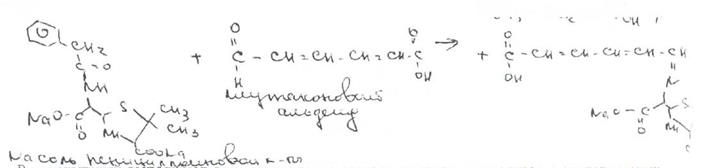 CH2
C=O
NH
NaO-C
O
S
CH3
CH3
NH
COONa
+
O
C - CH=CH-CH=CH-C
H
O
OH
глутаконовый
альдегид
→
+
O
C - CH=CH-CH=CH-CH
OH
N
S
NaO-C
O
Na соль пенициллоиновой к-ты